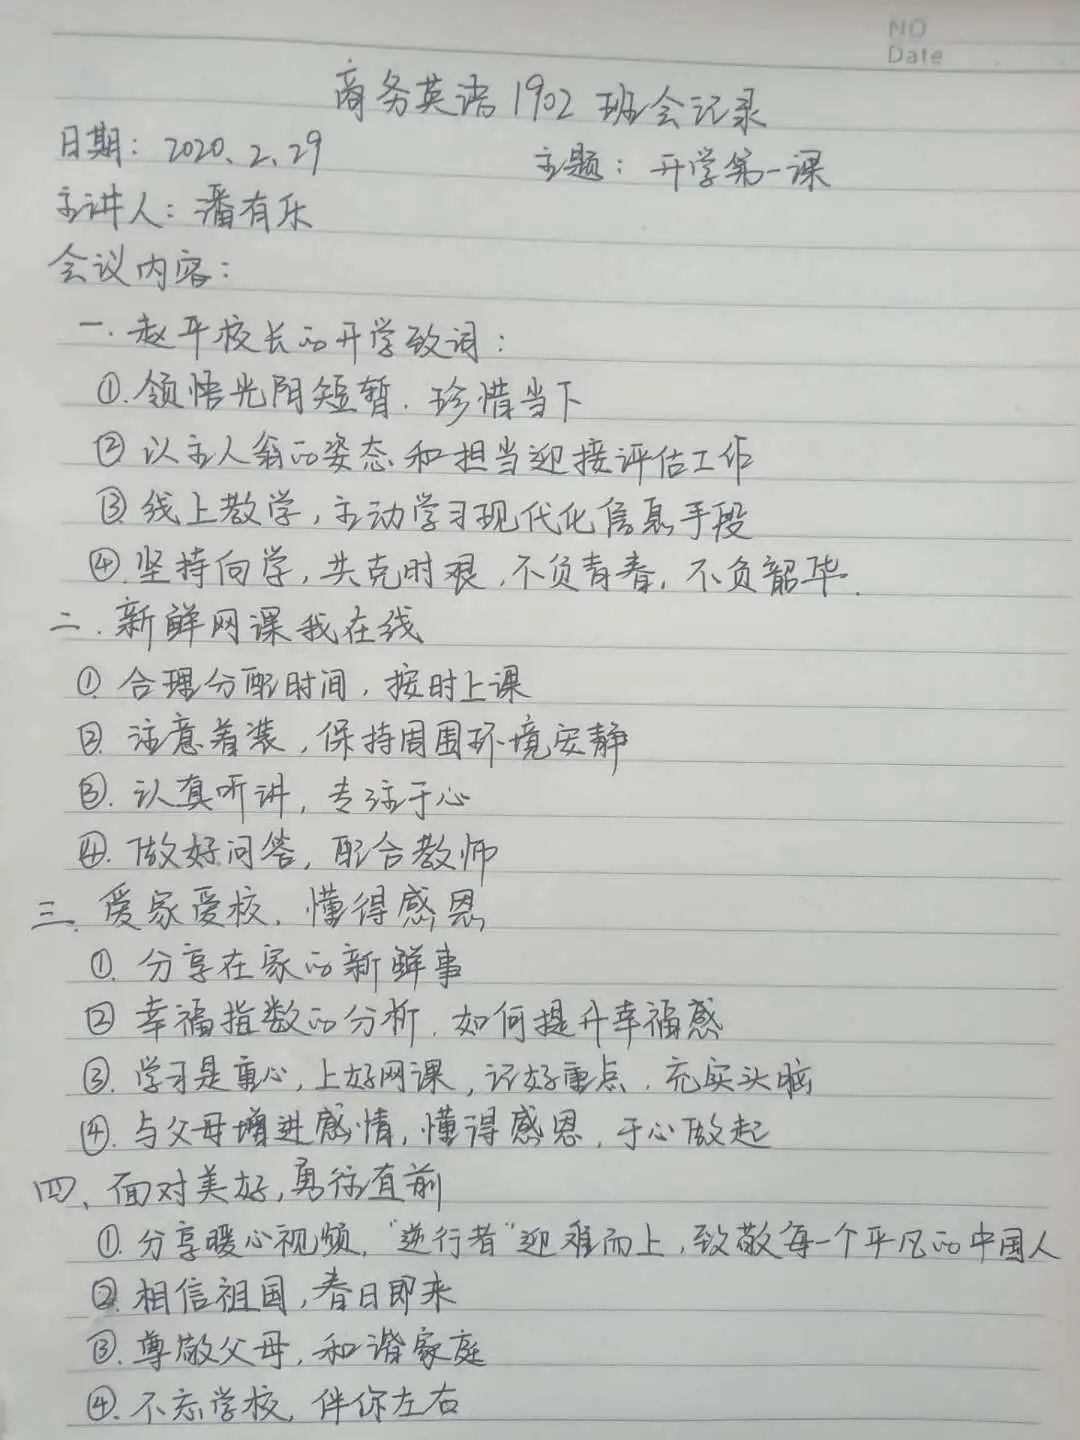 NO
Date
商务英语1902班会记录
日期：2020.2.29 主题：开学第一课
主讲人：潘有乐
会议内容：
一.赵平校长的开学致词：
①.领悟光阴短暂.珍惜当下
②以主人翁的姿态和担当迎接评估工作
③线上教学，主动学习现代化信息手段
④.坚持向学，共克时艰，不负青春，不负韶华.
二.新鲜网课我在线
①.合理分配时间，按时上课
②.注意着装，保持周围环境安静
③.认真听讲，专注于心
④.做好问答，配合教师
三.爱家爱校，懂得感恩
①.分享在家的新鲜事
②幸福指数的分析.如何提升幸福感
③.学习是重心，上好网课，记好重点.充实头脑
④.与父母增进感情，懂得感恩，于心做起
四、面对美好，勇往直前
①.分享暖心视频，“逆行者”迎难而上，致敬每一个平凡的中国人
②.相信祖国，春日即来
③.尊敬父母，和谐家庭
④.不忘学校，伴你左右